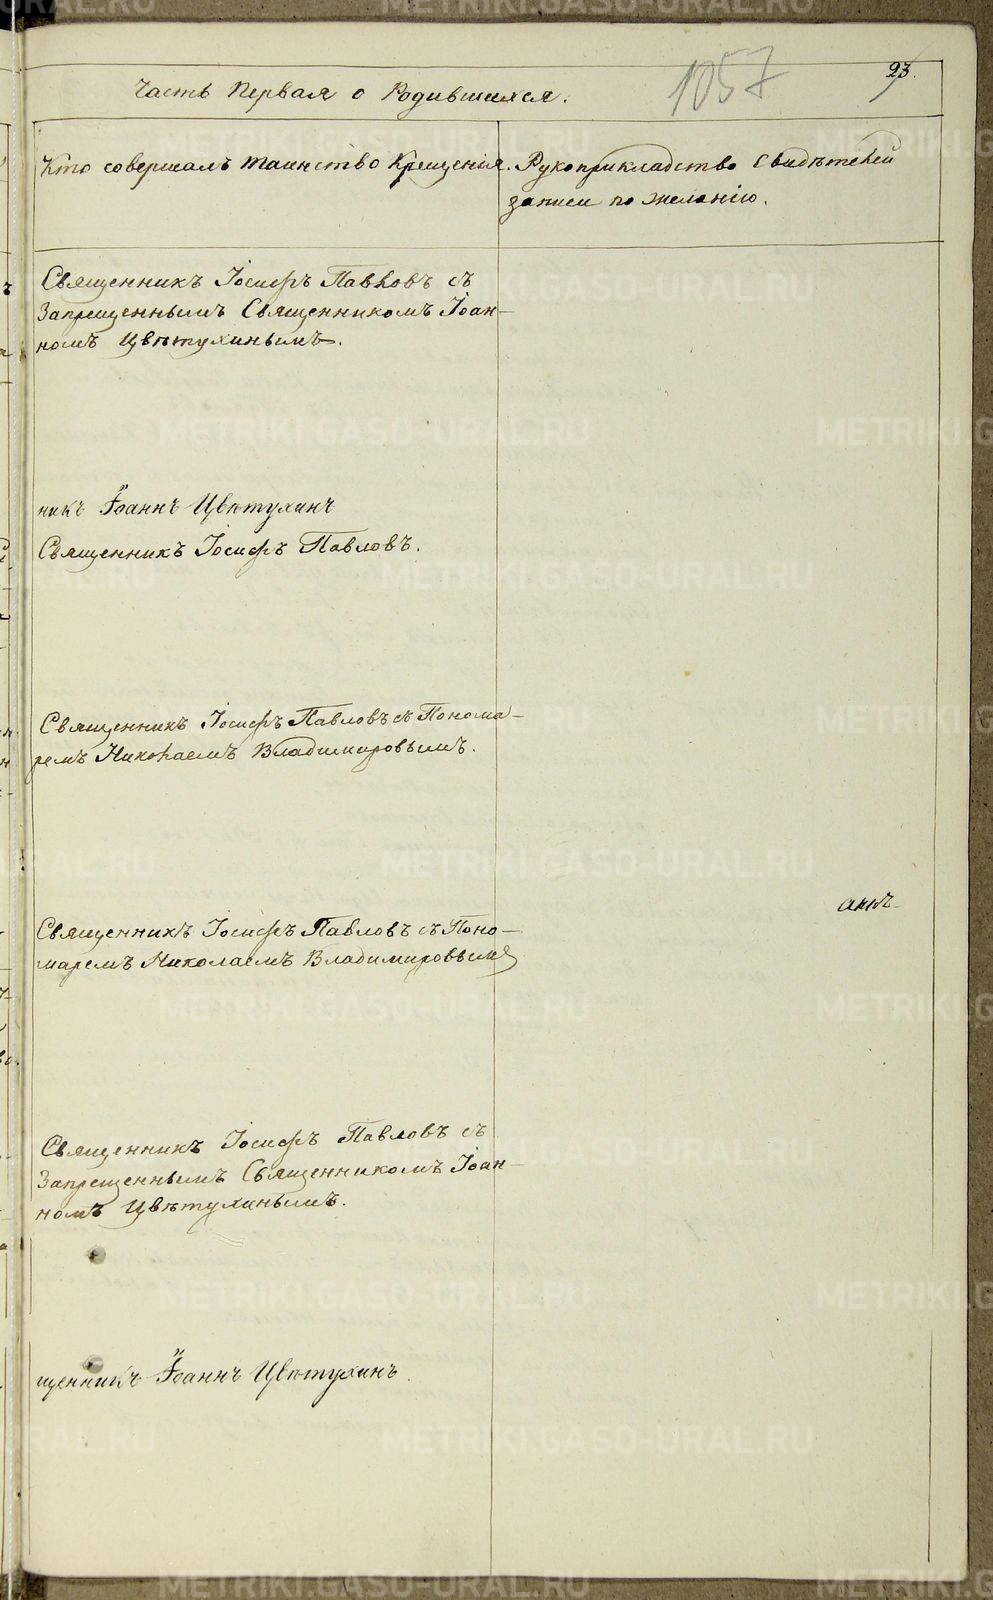 1057
23.
Часть Первая о Родившихся.
Кто совершалъ таинство Крещенія.
Рукоприкладство Свидѣтелей
записи по желанію.
Священникъ Іосифъ Павловъ съ
Запрещеннымъ Священникомъ Іоан-
номъ Цвѣтухинымъ.
никъ Іоаннъ Цвѣтухинъ
Священникъ Іосифъ Павловъ.
Священникъ Іосифъ Павловъ съ Понома-
ремъ Николаемъ Владимировымъ.
Священникъ Іосифъ Павловъ съ Поно-
маремъ Николаемъ Владимировымъ
Священникъ Іосифъ Павловъ съ
Запрещеннымъ Священникомъ Іоан-
номъ Цвѣтухинымъ.
щенникъ Іоаннъ Цвѣтухинъ.
METRIKI.GASO-URAL.RU